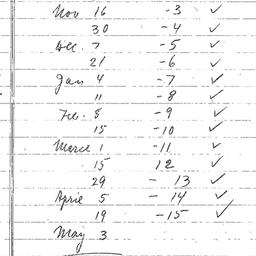 Nov 16 -3 ✓
30 -4 ✓
Dec. 7 -5 ✓
21 -6 ✓
Jan 4 -7 ✓
11 -8 ✓
Fe. 8 -9 ✓
15 -10 ✓
Merce 1 -11 ✓
15 12 ✓
29 - 13 ✓
Aprie 5 - 14 ✓
19 -15 ✓
May 3